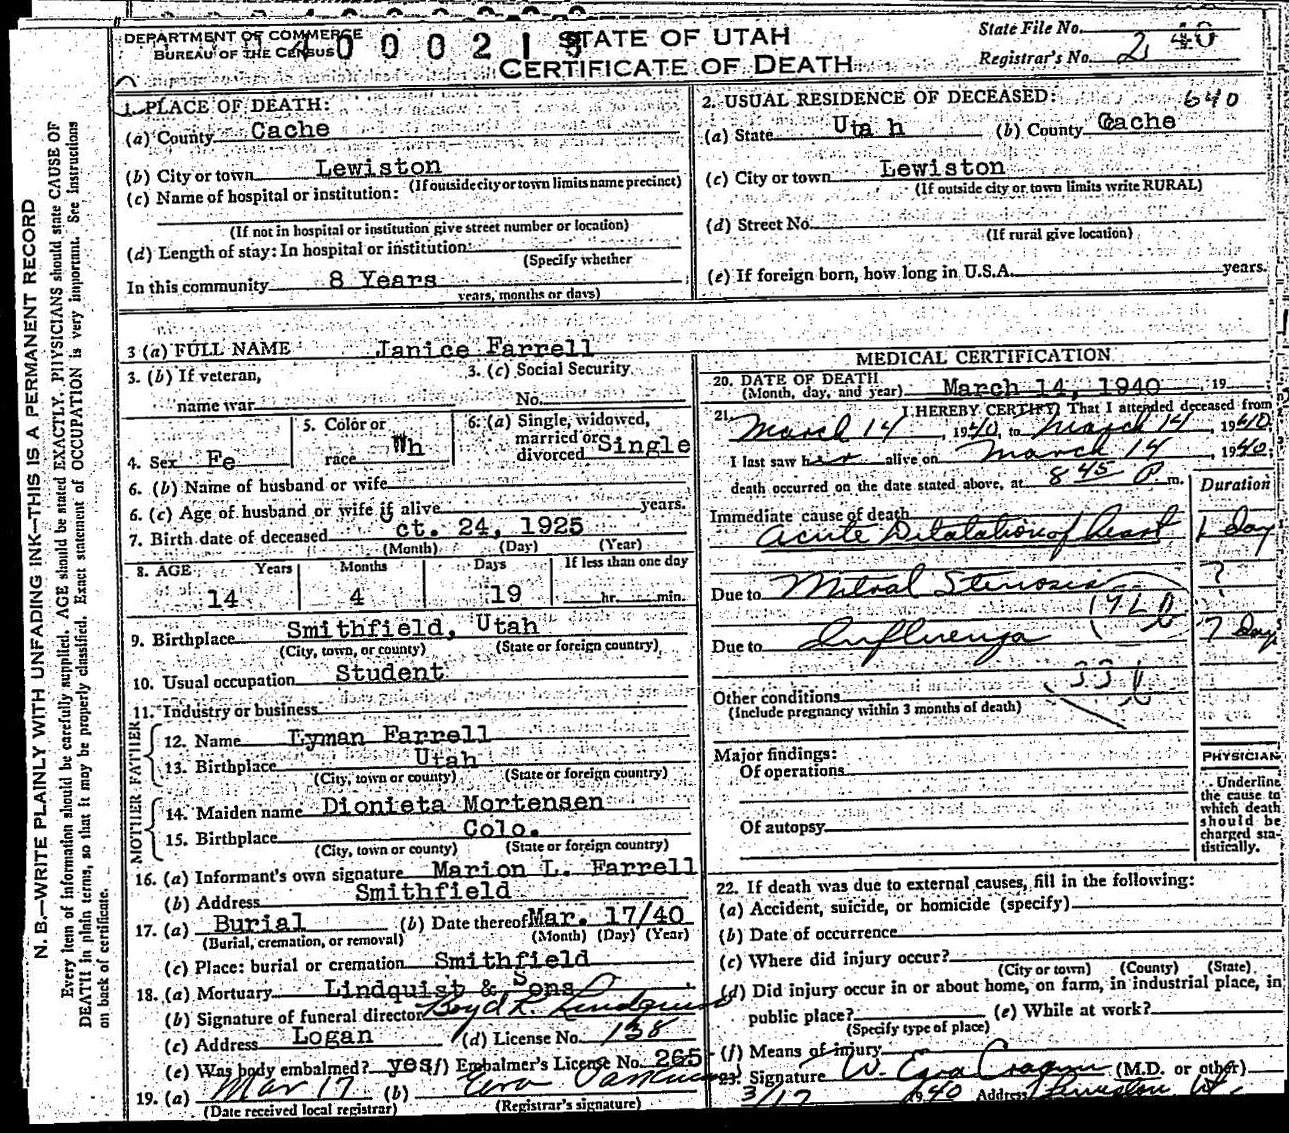 DEPARTMENT OF COMMERCE
BUREAU OF THE CENSUS
STATE OF UTAH
CERTIFICATE OF DEATH
State File No. 40
Registrar's No. 2
1. PLACE OF DEATH:
(a) County Cache
(b) City or town Lewiston
(If outside city or town limits name precinct)
(c) Name of hospital or institution:
(If not in hospital or institution give street number or location)
(d) Length of stay: In hospital or institution:
(Specify whether
In this community 8 Years
years, months or days)
2. USUAL RESIDENCE OF DECEASED: 640
(a) State Uta h (b) County Cache
(c) City or town Lewiston
(If outside city or town limits write RURAL)
(d) Street No.
(If rural give location)
(e) If foreign born, how long in U.S.A. years.
3 (a) FULL NAME Janice Farrell
3. (b) If veteran, name war
3. (c) Social Security No.
4. Sex Fe
5. Color or race Wh
6. (a) Single, widowed, married or divorced Single
6. (b) Name of husband or wife
6. (c) Age of husband or wife if alive years.
7. Birth date of deceased ct. 24, 1925
(Month) (Day) (Year)
8. AGE Years Months Days If less than one day
14 4 19 hr. min.
9. Birthplace Smithfield, Utah
(City, town, or county) (State or foreign country)
10. Usual occupation Student
11. Industry or business
FATHER
12. Name Lyman Farrell
13. Birthplace Utah
(City, town or county) (State or foreign country)
MOTHER
14. Maiden name Dionieta Mortensen
15. Birthplace Colo.
(City, town or county) (State or foreign country)
16. (a) Informant's own signature Marion L. Farrell
(b) Address Smithfield
17. (a) Burial (b) Date thereof Mar. 17/40
(Burial, cremation, or removal) (Month) (Day) (Year)
(c) Place: burial or cremation Smithfield
18. (a) Mortuary Lindquist & Sons
(b) Signature of funeral director Boyd R. Lindquist
(c) Address Logan (d) License No. 138
(e) Was body embalmed? yes (f) Embalmer's License No. 265
19. (a) Mar 17 (b) Ezra
(Date received local registrar) (Registrar's signature)
MEDICAL CERTIFICATION
20. DATE OF DEATH
(Month, day, and year) March 14, 1940, 19
21. I HEREBY CERTIFY, That I attended deceased from
March 14, 1940, to March 14, 1940
I last saw her alive on March 14, 1940;
death occurred on the date stated above, at 8 45 P. m.
Duration
Immediate cause of death
Acute Dilatation of heart 1 Day
Due to Mitral Stenosis ?
Due to Influenza 7 Day
Other conditions
(Include pregnancy within 3 months of death)
Major findings:
Of operations
Of autopsy
PHYSICIAN
Underline
the cause to
which death
should be
charged sta-
tistically.
22. If death was due to external causes, fill in the following:
(a) Accident, suicide, or homicide (specify)
(b) Date of occurrence
(c) Where did injury occur?
(City or town) (County) (State)
(d) Did injury occur in or about home, on farm, in industrial place, in
public place? (e) While at work?
(Specify type of place)
(f) Means of injury
23. Signature W. Ezra Cragun (M.D. or other)
3/17 1940 Address Lewiston Ut.
N. B.—WRITE PLAINLY WITH UNFADING INK—THIS IS A PERMANENT RECORD
Every item of information should be carefully supplied. AGE should be stated EXACTLY. PHYSICIANS should state CAUSE OF
DEATH in plain terms, so that it may be properly classified. Exact statement of OCCUPATION is very important. See instructions
on back of certificate.